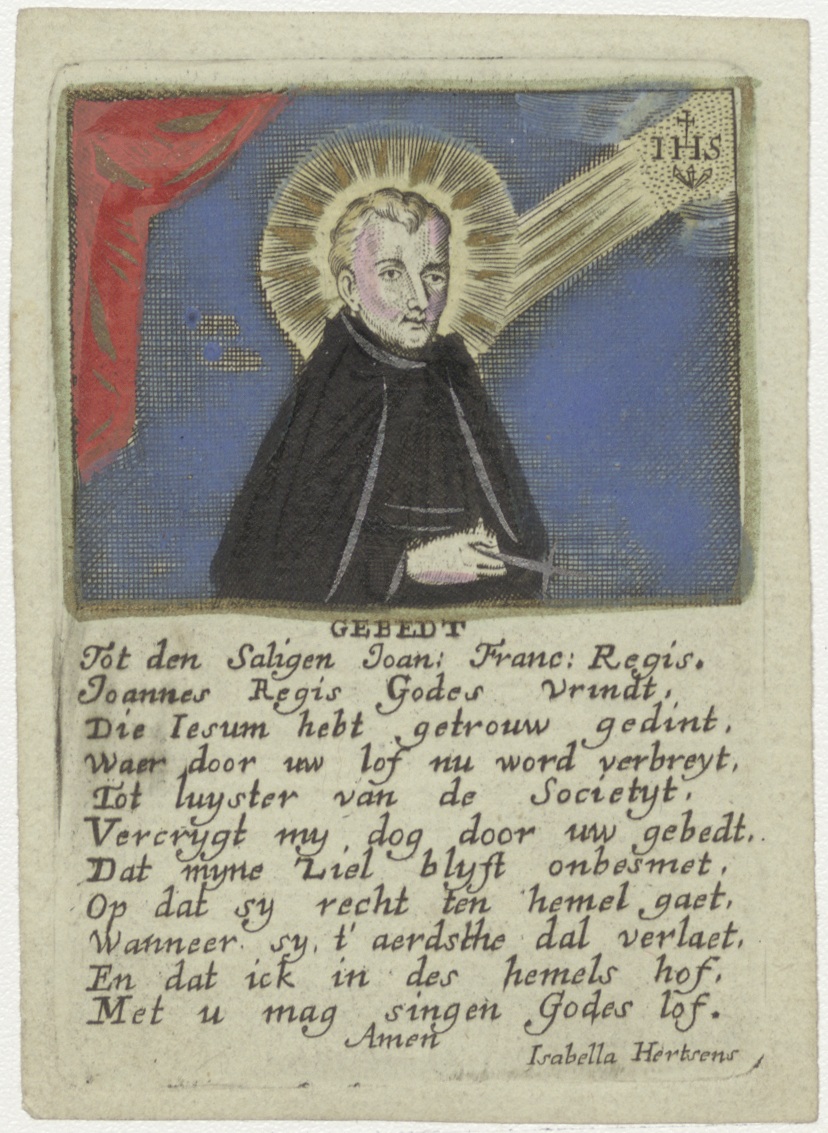 IHS
GEBEDT
Tot den Saligen Ioan: Franc: Regis.
Ioannes Regis Godes vrindt,
Die Iesum hebt getrouw gedint,
Waer door uw lof nu word verbreyt,
Tot luyster van de Societyt,
Vercrygt my dog door uw gebedt,
Dat myne Ziel blyft onbesmet,
Op dat sy recht ten hemel gaet,
Wanneer sy t' aerdsthe dal verlaet,
En dat ick in des hemels hof,
Met u mag singen Godes lof.
Amen
Isabella Hertsens,